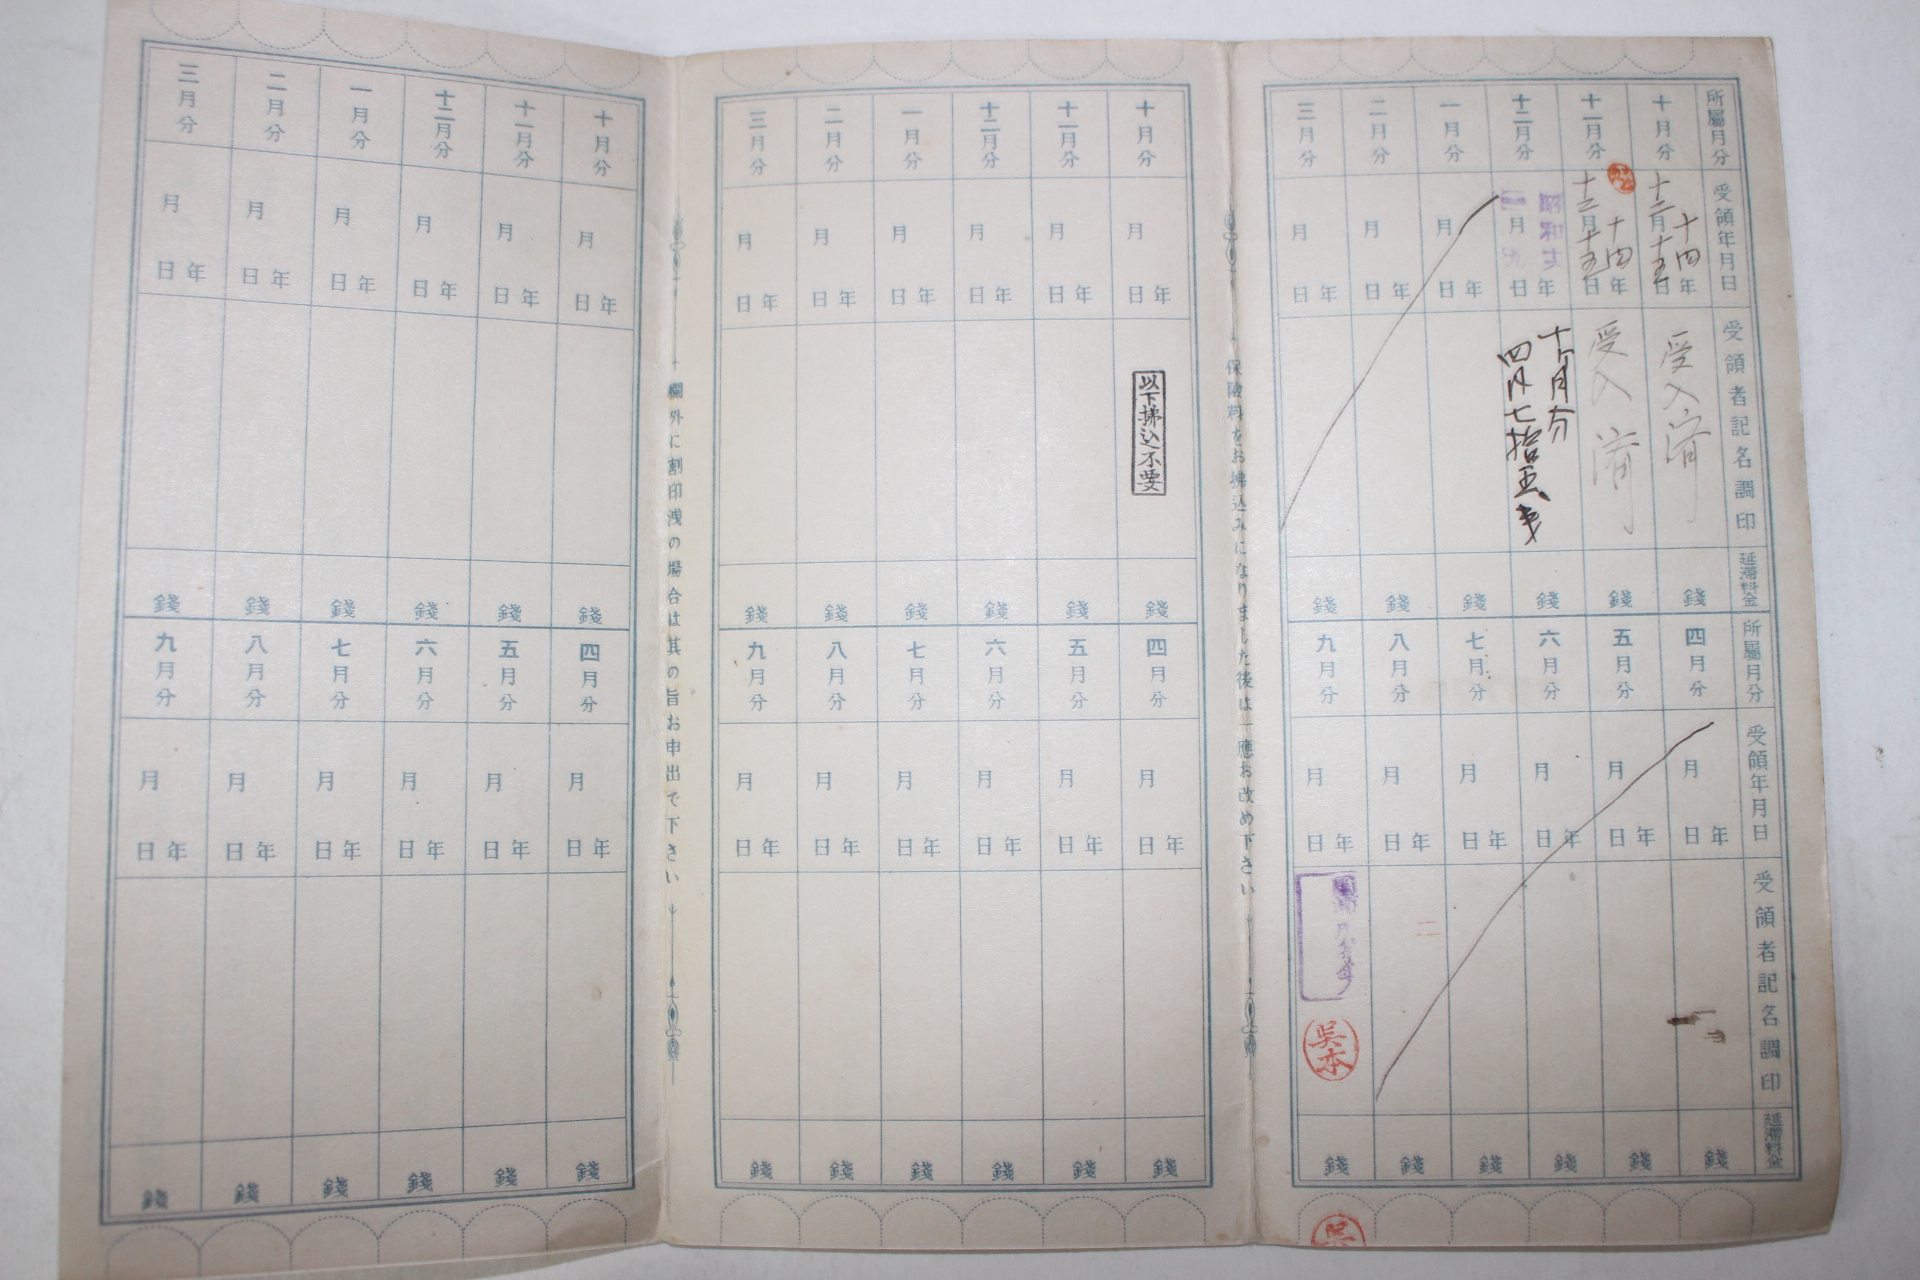 所屬月分
受領年月日
受領者記名調印
延滯料金
十月分
十四年
十二月十五日
受入濟
錢
十一月分
十四年
十二月十五日
受入濟
錢
十二月分
昭和 年
月 日
十ケ月分
四円七拾五戋
錢
一月分
年
月
日
錢
二月分
年
月
日
錢
三月分
年
月
日
錢
所屬月分
受領年月日
受領者記名調印
延滯料金
四月分
年
月
日
錢
五月分
年
月
日
錢
六月分
年
月
日
錢
七月分
年
月
日
錢
八月分
年
月
日
錢
九月分
年
月
日
吳本
錢
吳
保險料をお拂込みになりました後は一應お改め下さい
十月分
年
月
日
以下拂込不要
錢
十一月分
年
月
日
錢
十二月分
年
月
日
錢
一月分
年
月
日
錢
二月分
年
月
日
錢
三月分
年
月
日
錢
四月分
年
月
日
錢
五月分
年
月
日
錢
六月分
年
月
日
錢
七月分
年
月
日
錢
八月分
年
月
日
錢
九月分
年
月
日
錢
欄外に割印洩の場合は其の旨お申出で下さい
十月分
年
月
日
錢
十一月分
年
月
日
錢
十二月分
年
月
日
錢
一月分
年
月
日
錢
二月分
年
月
日
錢
三月分
年
月
日
錢
四月分
年
月
日
錢
五月分
年
月
日
錢
六月分
年
月
日
錢
七月分
年
月
日
錢
八月分
年
月
日
錢
九月分
年
月
日
錢